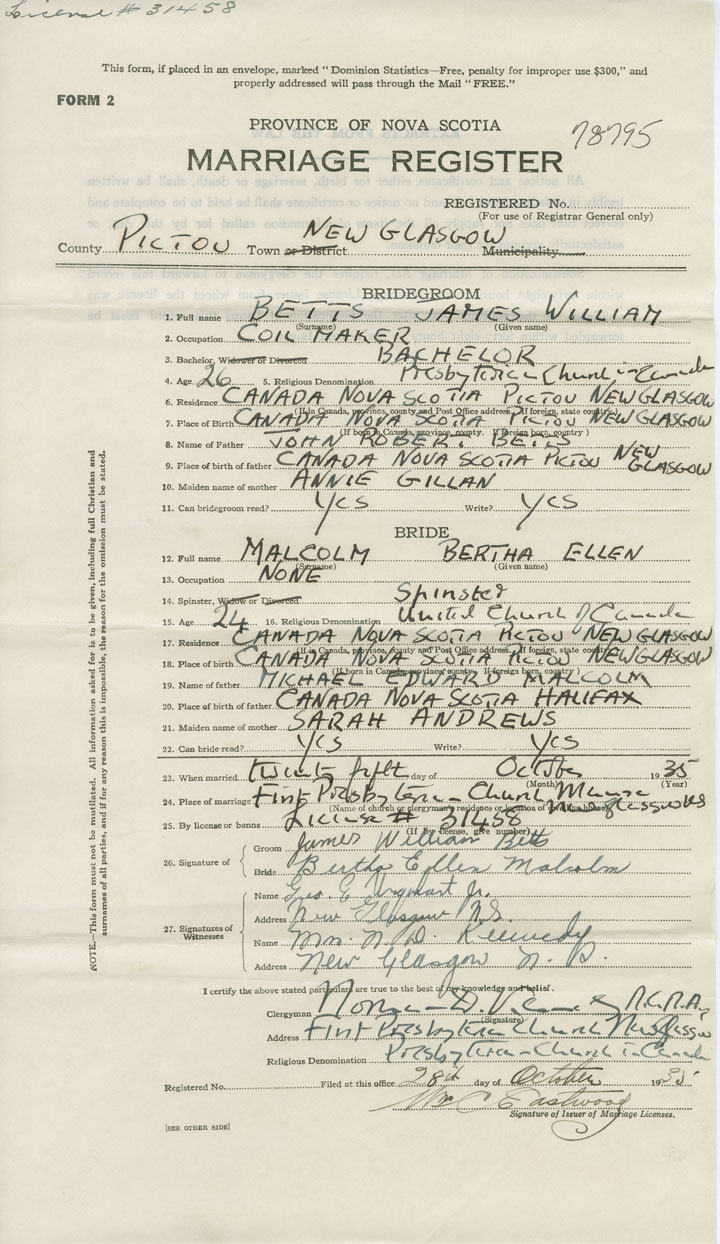 License # 31458
This form, if placed in an envelope, marked "Dominion Statistics—Free, penalty for improper use $300," and
properly addressed will pass through the Mail "FREE."
FORM 2
PROVINCE OF NOVA SCOTIA
78795
MARRIAGE REGISTER
REGISTERED No.
(For use of Registrar General only)
County PICTOU Town or District NEW GLASGOW Municipality
BRIDEGROOM
1. Full name BETTS JAMES WILLIAM
(Surname) (Given name)
2. Occupation COIL MAKER
3. Bachelor, Widower or Divorced BACHELOR
4. Age 26 5. Religious Denomination Presbyterian Church in Canada
6. Residence CANADA NOVA SCOTIA PICTOU NEW GLASGOW
(If in Canada, province, county and Post Office address. If foreign, state country)
7. Place of Birth CANADA NOVA SCOTIA PICTOU NEW GLASGOW
(If born in Canada, province, county. If foreign born, country)
8. Name of Father JOHN ROBERT BETTS
9. Place of birth of father CANADA NOVA SCOTIA PICTOU NEW GLASGOW
10. Maiden name of mother ANNIE GILLAN
11. Can bridegroom read? Yes Write? Yes
BRIDE
12. Full name MALCOLM BERTHA ELLEN
(Surname) (Given name)
13. Occupation NONE
14. Spinster, Widow or Divorced Spinster
15. Age 24 16. Religious Denomination United Church of Canada
17. Residence CANADA NOVA SCOTIA PICTOU NEW GLASGOW
(If in Canada, province, county and Post Office address. If foreign, state country)
18. Place of birth CANADA NOVA SCOTIA PICTOU NEW GLASGOW
(If born in Canada, province, county. If foreign born, country)
19. Name of father MICHAEL EDWARD MALCOLM
20. Place of birth of father CANADA NOVA SCOTIA HALIFAX
21. Maiden name of mother SARAH ANDREWS
22. Can bride read? Yes Write? Yes
23. When married twenty fifth day of October 1935
(Month) (Year)
24. Place of marriage First Presbyterian Church Manse New Glasgow NS
(Name of church or clergyman's residence or location of
25. By license or banns License # 31458
(If by license, give number)
26. Signature of
Groom James William Betts
Bride Bertha Ellen Malcolm
27. Signatures of Witnesses
Name Geo. E Urquhart Jr.
Address New Glasgow N.S.
Name Mrs. N. D. Kennedy
Address New Glasgow N. S.
I certify the above stated particulars are true to the best of my knowledge and belief.
Clergyman Norman D.
(Signature)
Address First Presbyterian Church New Glasgow
Religious Denomination Presbyterian Church in Canada
Registered No. Filed at this office 28th day of October 1935
Wm C Eastwood
Signature of Issuer of Marriage Licenses.
[SEE OTHER SIDE]
NOTE.—This form must not be mutilated. All information asked for is to be given, including full Christian and
surnames of all parties, and if for any reason this is impossible, the reason for the omission must be stated.